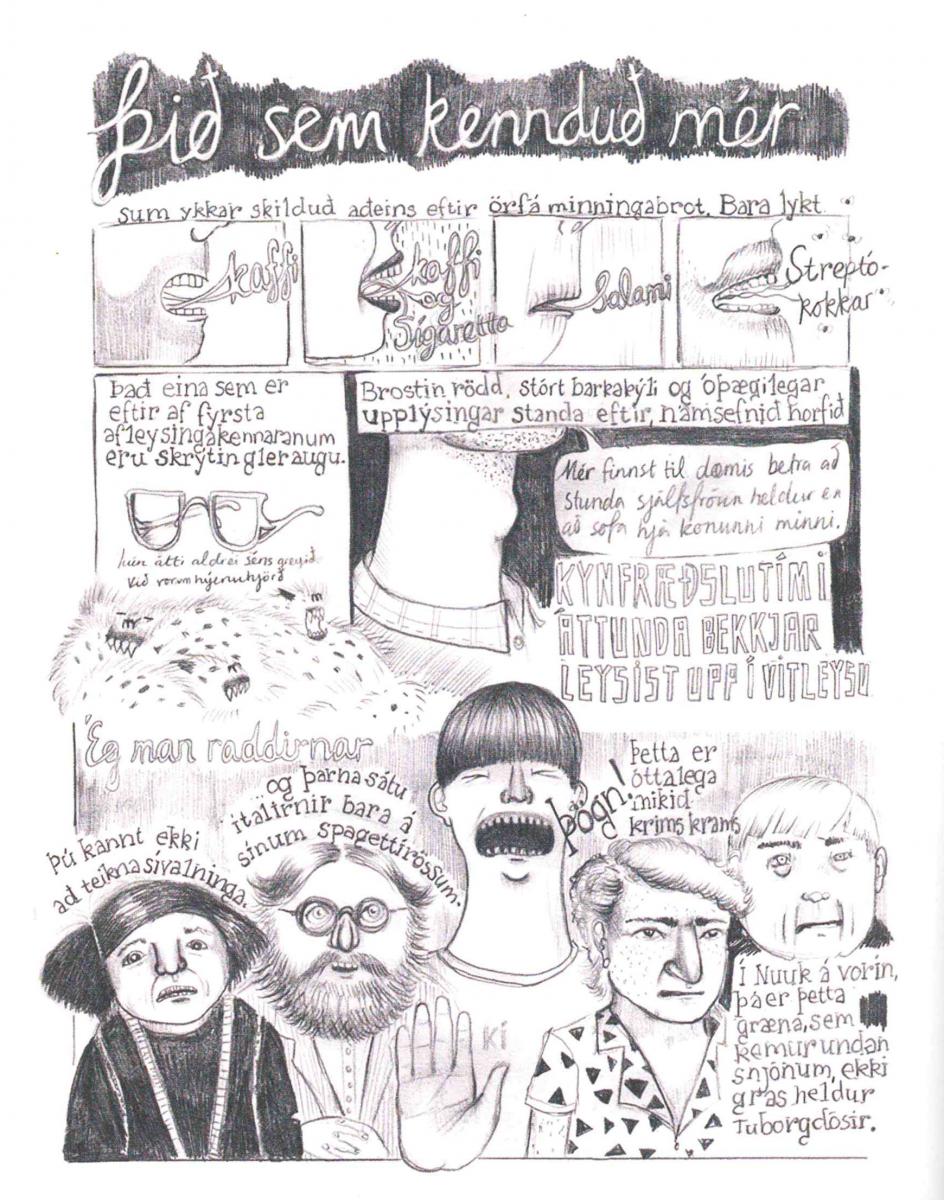 Þið sem kennduð mér
Sum ykkar skilduð aðeins eftir örfá minningabrot. Bara lykt
kaffi
kaffi
og
Sígaretta
Salami
Streptó-
kokkar
Það eina sem er
eftir af fyrsta
afleysingakennaranum
eru skrýtin gleraugu.
hún átti aldrei séns greyið
við vorum hýenuhjörð
Brostin rödd, stórt barkakýli og óþægilegar
upplýsingar standa eftir, námsefnið horfið
Mér finnst til dæmis betra að
stunda sjálfsfróun heldur en
að sofa hjá konunni minni.
KYNFRÆÐSLUTÍMI
ÁTTUNDA BEKKJAR
LEYSIST UPP Í VITLEYSU
Ég man raddirnar
Þú kannt ekki
að teikna sívalninga.
og þarna sátu
ítalirnir bara á
sínum spagettírössum.
Þögn!
Þetta er
óttalega
mikið
krims krams
KÍ
Í Nuuk á vorin,
þá er þetta
græna, sem
kemur undan
snjónum, ekki
gras heldur
Tuborgdósir.